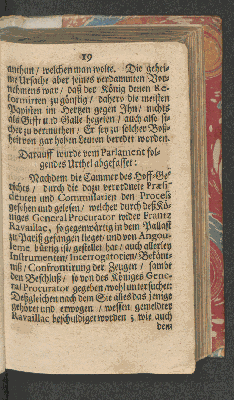 19
anthun / welchen man wolte. Die gehei-
me Ursache aber seines verdammten Vor-
nehmens war / daß der König denen Re-
formirten zu günstig / dahero die meisten
Papisten im Hertzen gegen Ihn / nichts
als Gifft und Galle hegeten / auch also si-
cher zu vermuthen / Er sey zu solcher Boß-
heit von gar hohen Leuten beredet worden.
Darauff wurde vom Parlament fol-
gendes Urthel abgefasset:
Nachdem die Cammer des Hoff-Ge-
richts / durch die dazu verordnete Præsi-
denten und Commissarien den Proceß
gesehen und gelesen / welcher durch deß Kö-
niges General Procurator wider Frantz
Ravaillac, so gegenwärtig in dem Pallast
zu Pariß gefangen lieget und von Angou-
lesme bürtig ist / gestellet / hat / auch allerley
Instrumenten / Interrogatorien / Bekänt-
niß / Confrontirung der Zeugen / sambt
den Beschluß / so von des Königes Gene-
ral Procurator gegeben / wohl untersuchet:
Deßgleichen nach dem Sie alles das jenige
gehöret und erwogen / wessen gemeldter
Ravaillac beschuldiget worden ; wie auch
dem